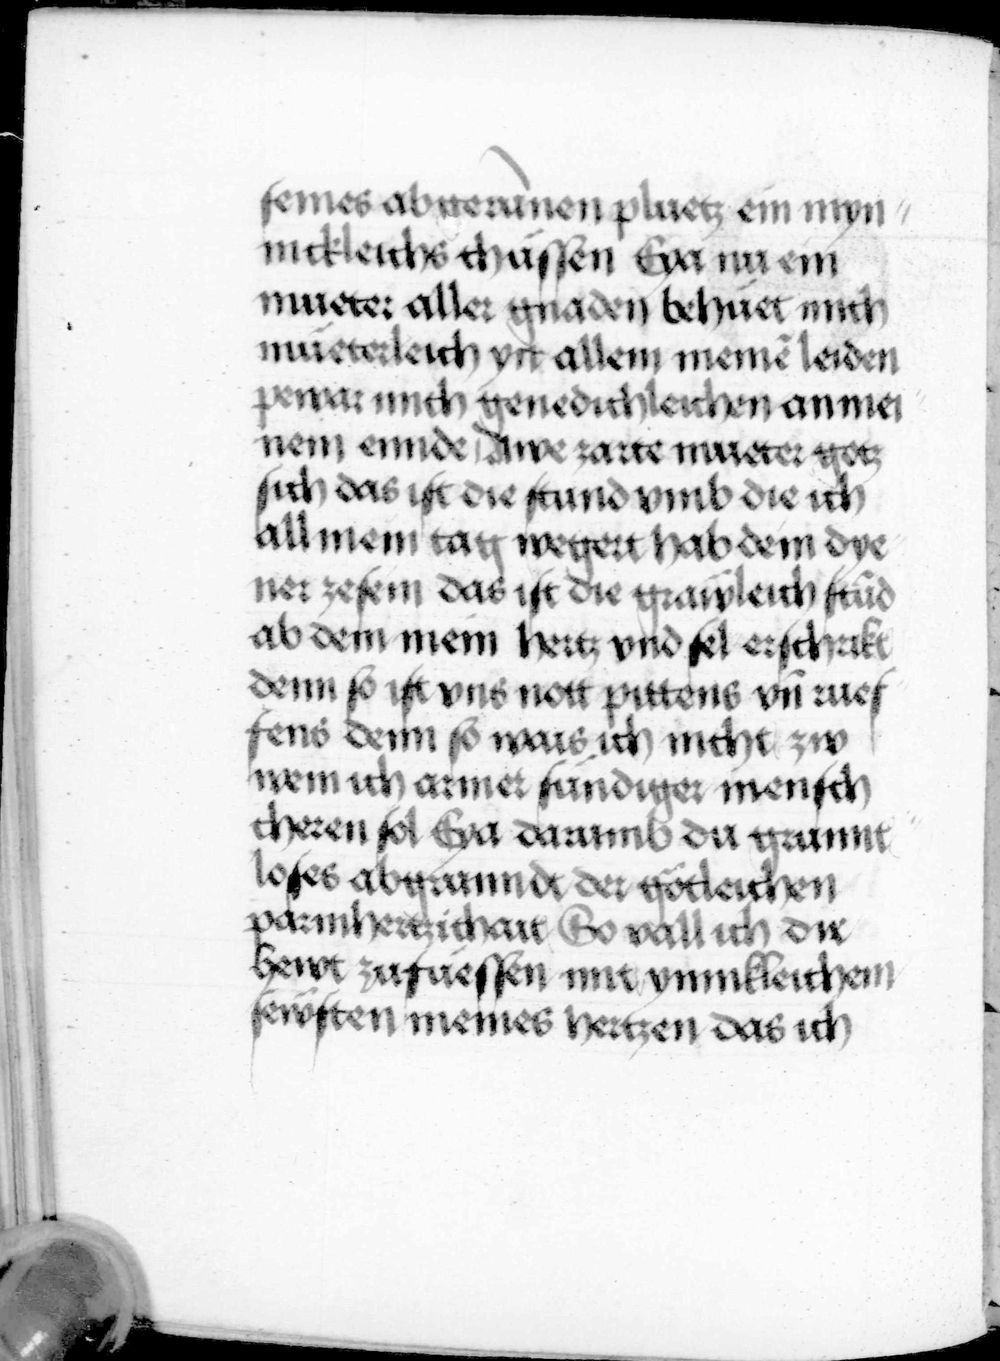 seines abgerūnen pluetz ein myn⸗
nickleichs chüssen Eya nu ein
mueter aller gnaden behüet mich
müeterleich vit allem meinē leiden
pewar mich genedichleichen an mei⸗
nem ennde Awe zarte mueter gotz
sich das ist die stund vmb die ich
all mein tag wegert hab dein dye⸗
ner ze sein das ist die grawleich stūd
ab dem mein hertz vnd sel erschrikt
denn so ist vns nott pittens vn̄ ruef⸗
fens denn so wais ich nicht zw
wem ich armer sündiger mensch
cheren sol Eya darumb du grunnt⸗
loses abgrunndt der götleichen
parmhertzichait So vall ich dir
hewt zu füessen mit ynnikleichem
sewften meines hertzen das ich